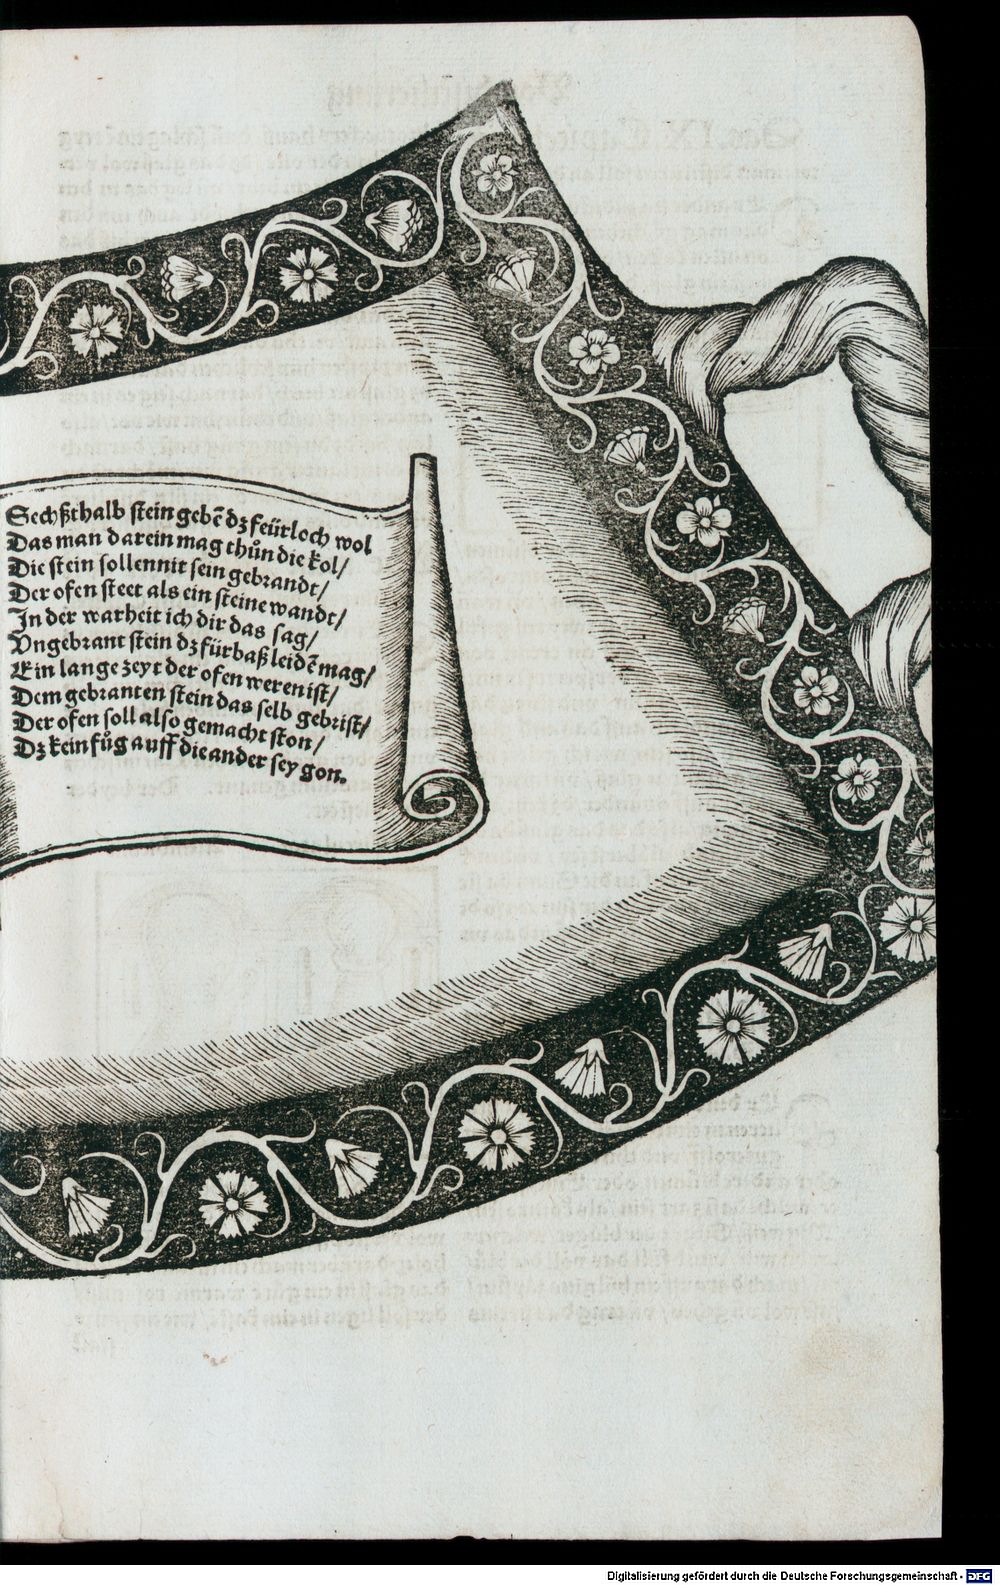 Sechßthalb stein gebē dz feürloch wol
Das man darein mag thůn die kol/
Die stein sollen nit sein gebrandt/
Der ofen steet als ein steine wandt/
In der warheit ich dir das sag/
Vngebrant stein dz fürbaß leidē mag/
Ein lange zeyt der ofen weren ist/
Dem gebranten stein das selb gebrist/
Der ofen soll also gemacht ston/
Dz kein fůg auff die ander sey gon.
Digitalisierung gefördert durch die Deutsche Forschungsgemeinschaft - DFG